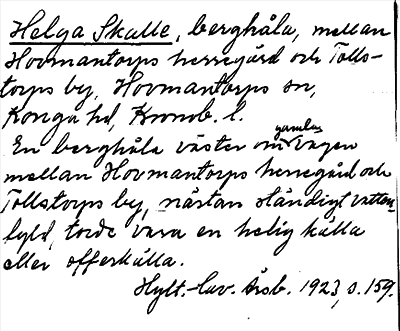 Helga Skulle, berghåla, mellan
Hovmantorps herregård och Tolls-
torps by, Hovmantorps sn,
Konga hd, Kronb. l.
En berghåla väster om gamla vägen
mellan Hovmantorps herregård och
Tollstorps by, nästan ständigt vatten-
fyld, torde vara en helig källa
eller offerkälla.
Hylt.-Cav. Årsb. 1923, s. 159.